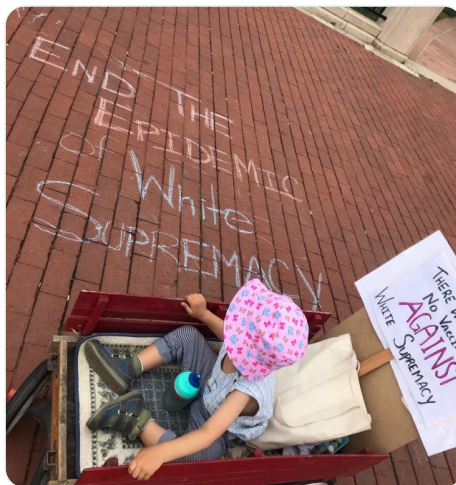 END THE
EPIDEMIC
of White
SUPREMACY
THERE
NO
AGAINST
WHITE SUPREMACY